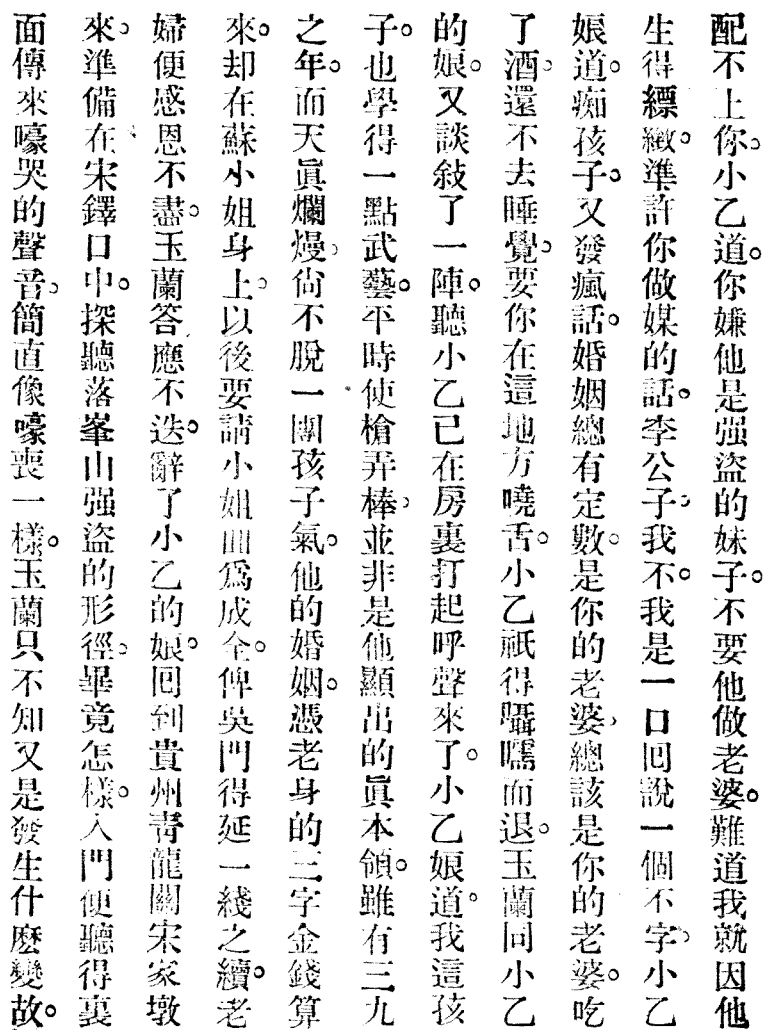 配不上你。小乙道。你嫌他是强盜的妹子。不要他做老婆。難道我就因他
生得縹緻。準許你做媒的話。李公子。我不。我是一口回說一個不字。小乙
娘道。痴孩子。又發瘋話。婚姻總有定數。是你的老婆。總該是你的老婆。吃
了酒。還不去睡覺。要你在這地方嘵舌。小乙祇得囁嚅而退。玉蘭同小乙
的娘。又談敍了一陣。聽小乙已在房裏打起呼聲來了。小乙娘道。我這孩
子。也學得一點武藝。平時使槍弄棒。並非是他顯出的眞本領。雖有三九
之年。而天眞爛熳。尙不脫一團孩子氣。他的婚姻。憑老身的三字金錢算
來。却在蘇小姐身上。以後要請小姐面爲成全。俾吳門得延一綫之續。老
婦便感恩不盡。玉蘭答應不迭。辭了小乙的娘。回到貴州靑龍關宋家墩
來。準備在宋鐸口中。探聽落峯山强盜的形徑。畢竟怎樣。入門便聽得裏
面傳來嚎哭的聲音。簡直像嚎喪一樣。玉蘭只不知又是發生什麽變故。